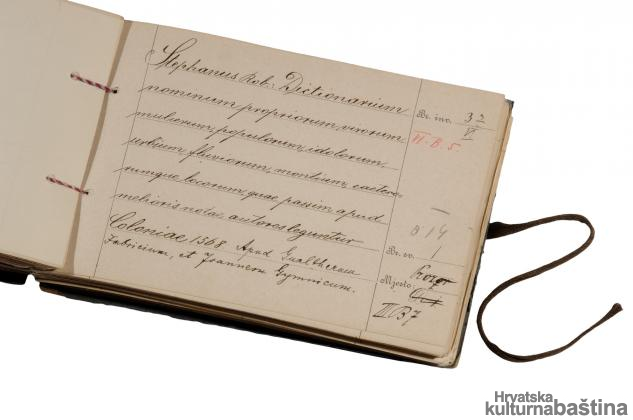 Stephanus Rob.: Dictionarium
nominum propriorum, virorum
mulierum, populorum, idolorum,
urbium, fluviorum, montium, caetero-
rumque locorum, quae passim apud
melioris notae autores leguntur
Coloniae 1568 Apud Gualtherum
Fabricium, et Joannem Gymnicum.
Br. inv. 32
VI
VI. B. 5.
Br. sv. 1
Mjesto
III B 7
Hrvatska
kulturnabaština